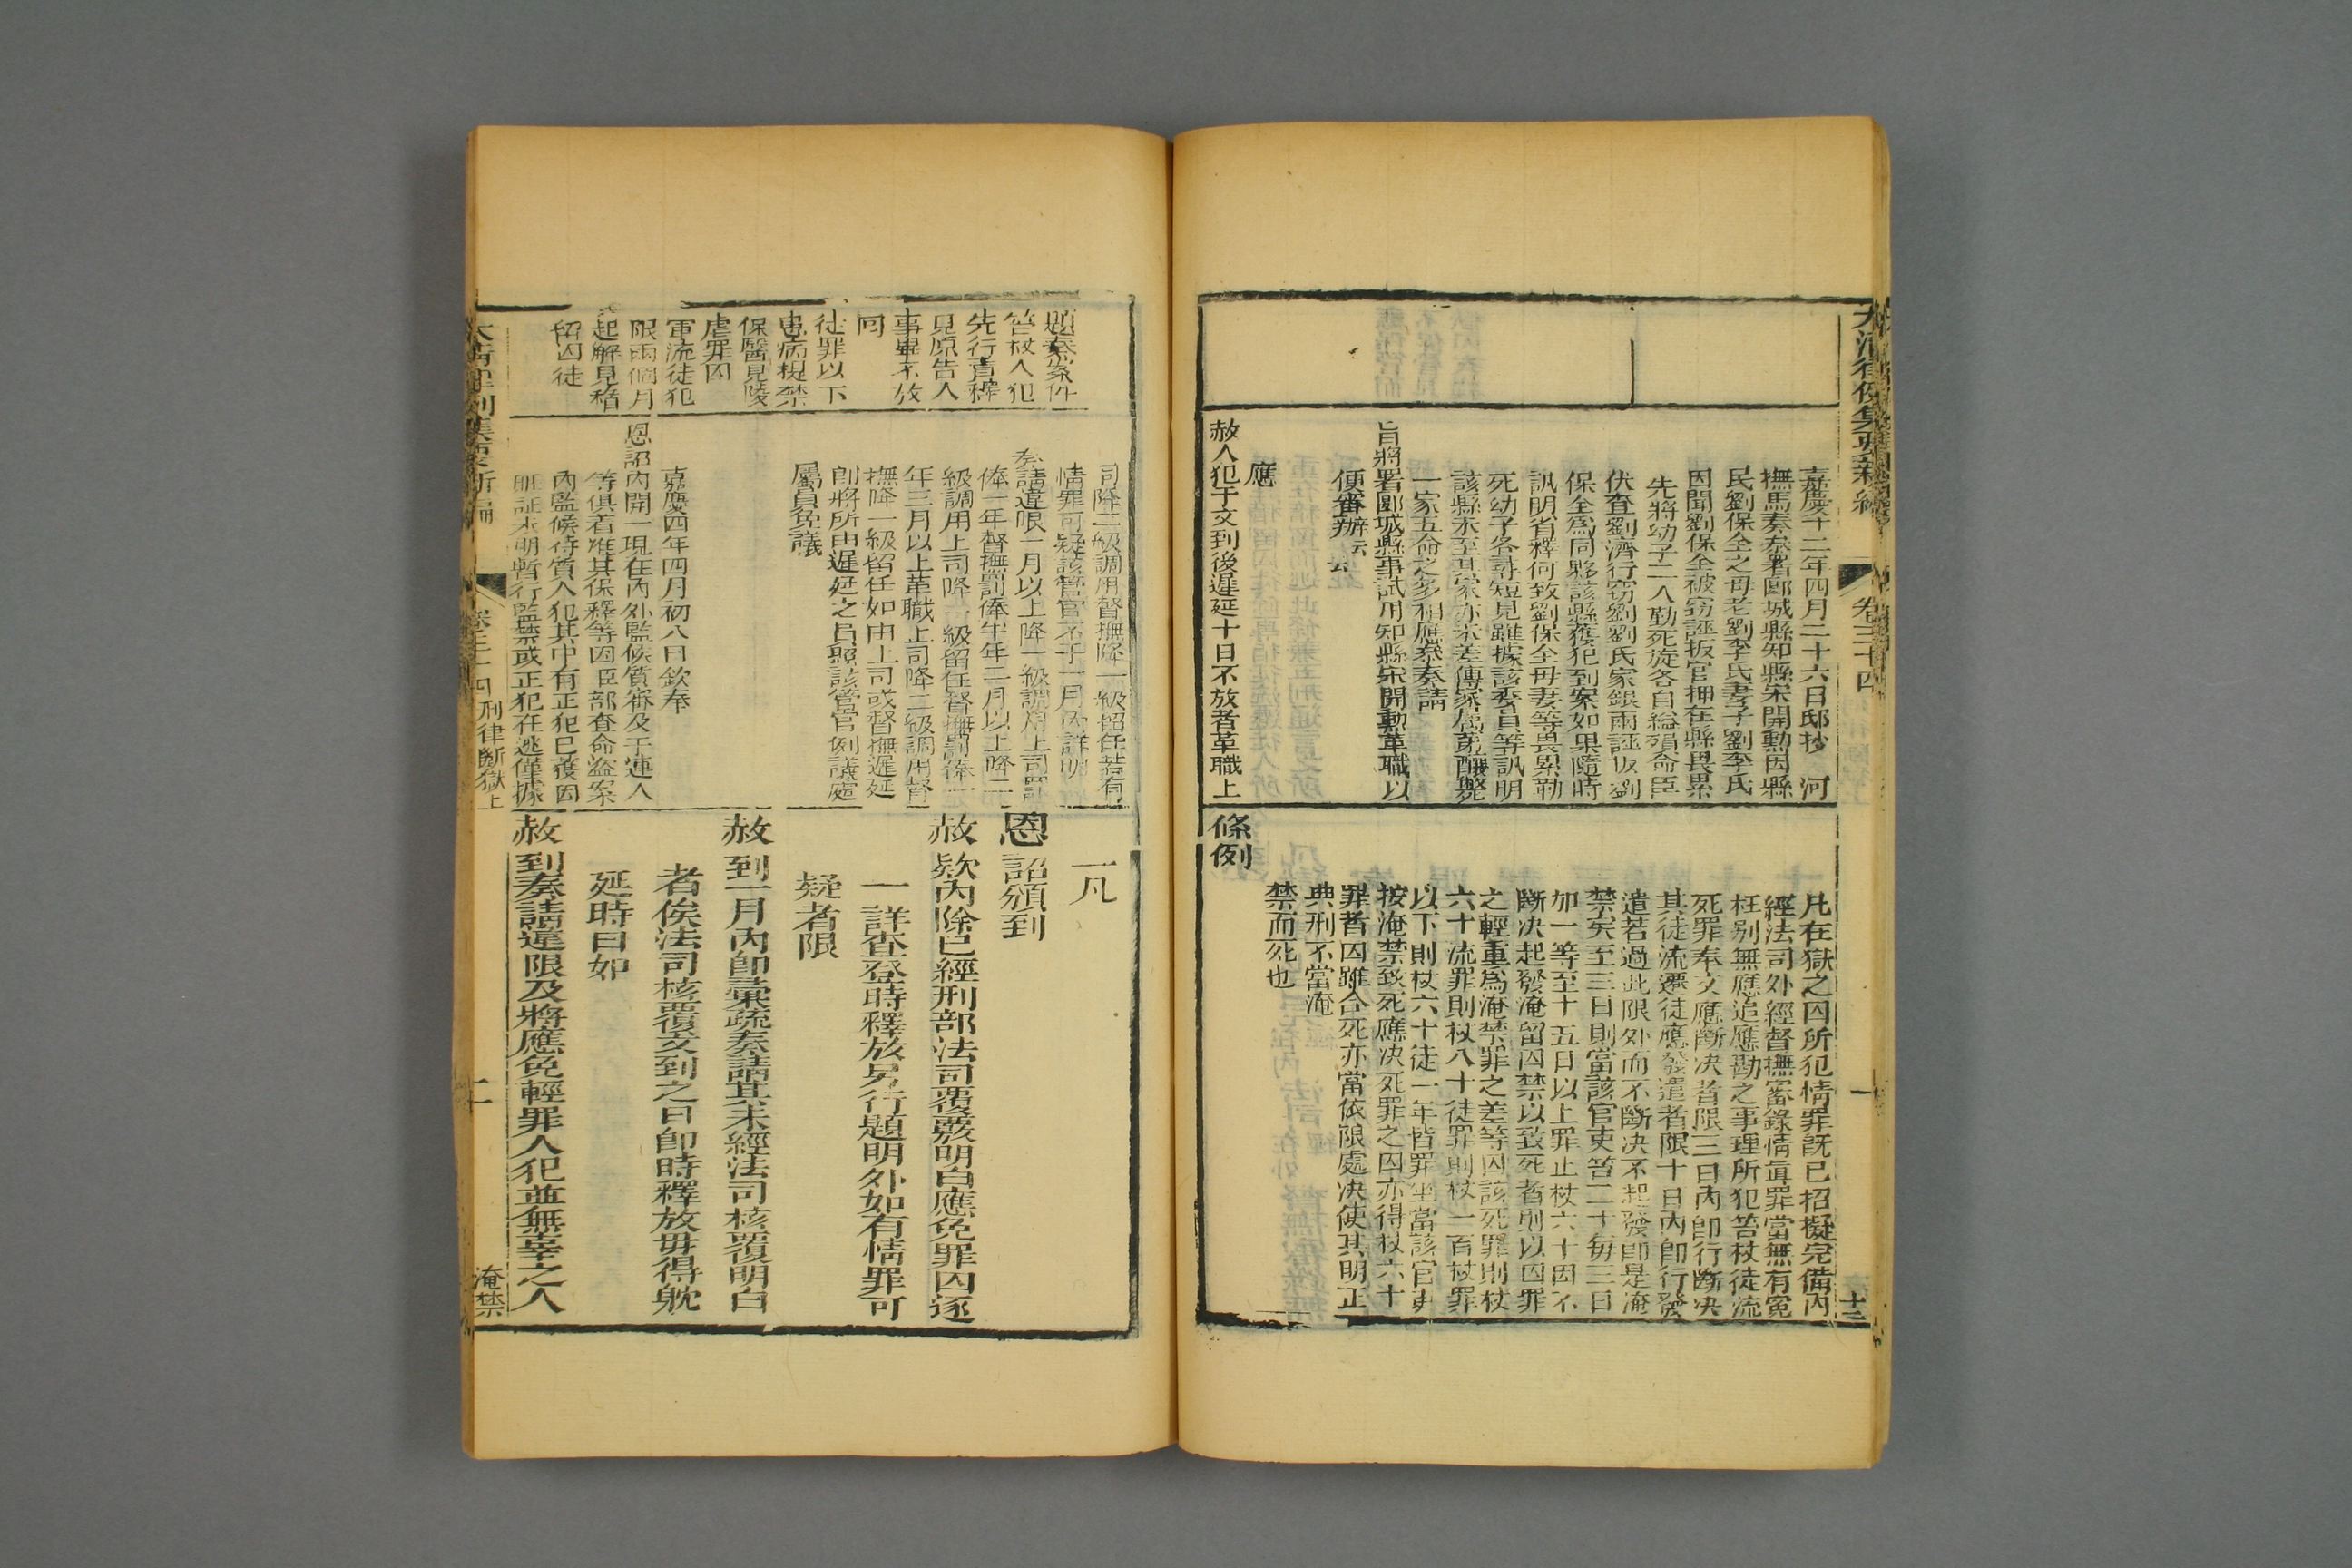 大清律例集要新編
卷三十四
嘉慶十二年四月二十六日邸抄　河
撫馬奏叅署郾城縣知縣宋開勳因縣
民劉保全之母老劉李氏妻子劉李氏
因聞劉保全被竊誣扳官押在縣畏累
先將幼子二人勒死旋各自縊殞命臣
伏查劉濟行竊劉劉氏家銀兩誣扳劉
保全為同夥該縣獲犯到案如果隨時
訊明省釋何致劉保全母妻等畏累勒
死幼子各尋短見雖據該委員等訊明
該縣未至其家亦未差傳家屬第釀斃
一家五命之多相應叅奏請
旨將署郾城縣事試用知縣宋開勳革職以
便審辦云云
應
赦人犯于文到後遲延十日不放者革職上
凡在獄之囚所犯情罪既已招擬完備內
經法司外經督撫審錄情真罪當無有冤
枉別無應追應勘之事理所犯笞杖徒流
死罪奉文應斷决者限三日內即行斷决
其徒流遷徒應發遣者限十日內即行發
遣若過此限外而不斷决不起發即是淹
禁矣至三日則當該官吏笞二十每三日
加一等至十五日以上罪止杖六十因不
斷决起發淹留囚禁以致死者則以囚罪
之輕重為淹禁罪之差等囚該死罪則杖
六十流罪則杖八十徒罪則杖一百杖罪
以下則杖六十徒一年皆罪坐當該官吏
按淹禁致死應决死罪之囚亦得杖六十
罪者囚雖合死亦當依限處决使其明正
典刑不當淹
禁而死也
條例
題奏案件
笞杖人犯
先行責釋
見原告人
事畢不放
回
徒罪以下
患病提禁
保醫見陵
虐罪囚
軍流徒犯
限兩個月
起解見稽
留囚徒
司降二級調用督撫降一級留任若有
情罪可疑該管官不于一月內詳明
奏請違限一月以上降一級調用上司罰
俸一年督撫罰俸半年二月以上降二
級調用上司降一級留任督撫罰俸一
年三月以上革職上司降二級調用督
撫降一級留任如由上司或督撫遲延
即將所由遲延之員照該管官例議處
屬員免議
嘉慶四年四月初八日欽奉
恩詔內開一現在內外監候質審及干連人
等俱着准其保釋等因臣部查命盜案
內監候待質人犯其中有正犯已獲因
証未明暫行監禁或正犯在逃僅據
一凡
恩詔頒到
赦欵內除已經刑部法司覆覈明白應免罪囚逐
一詳查登時釋放另行題明外如有情罪可
疑者限
赦到一月內即彙疏奏請其未經法司核覆明白
者俟法司核覆文到之日即時釋放毋得躭
延時日如
赦到奏請違限及將應免輕罪人犯並無辜之人
刑律斷獄上
淹禁